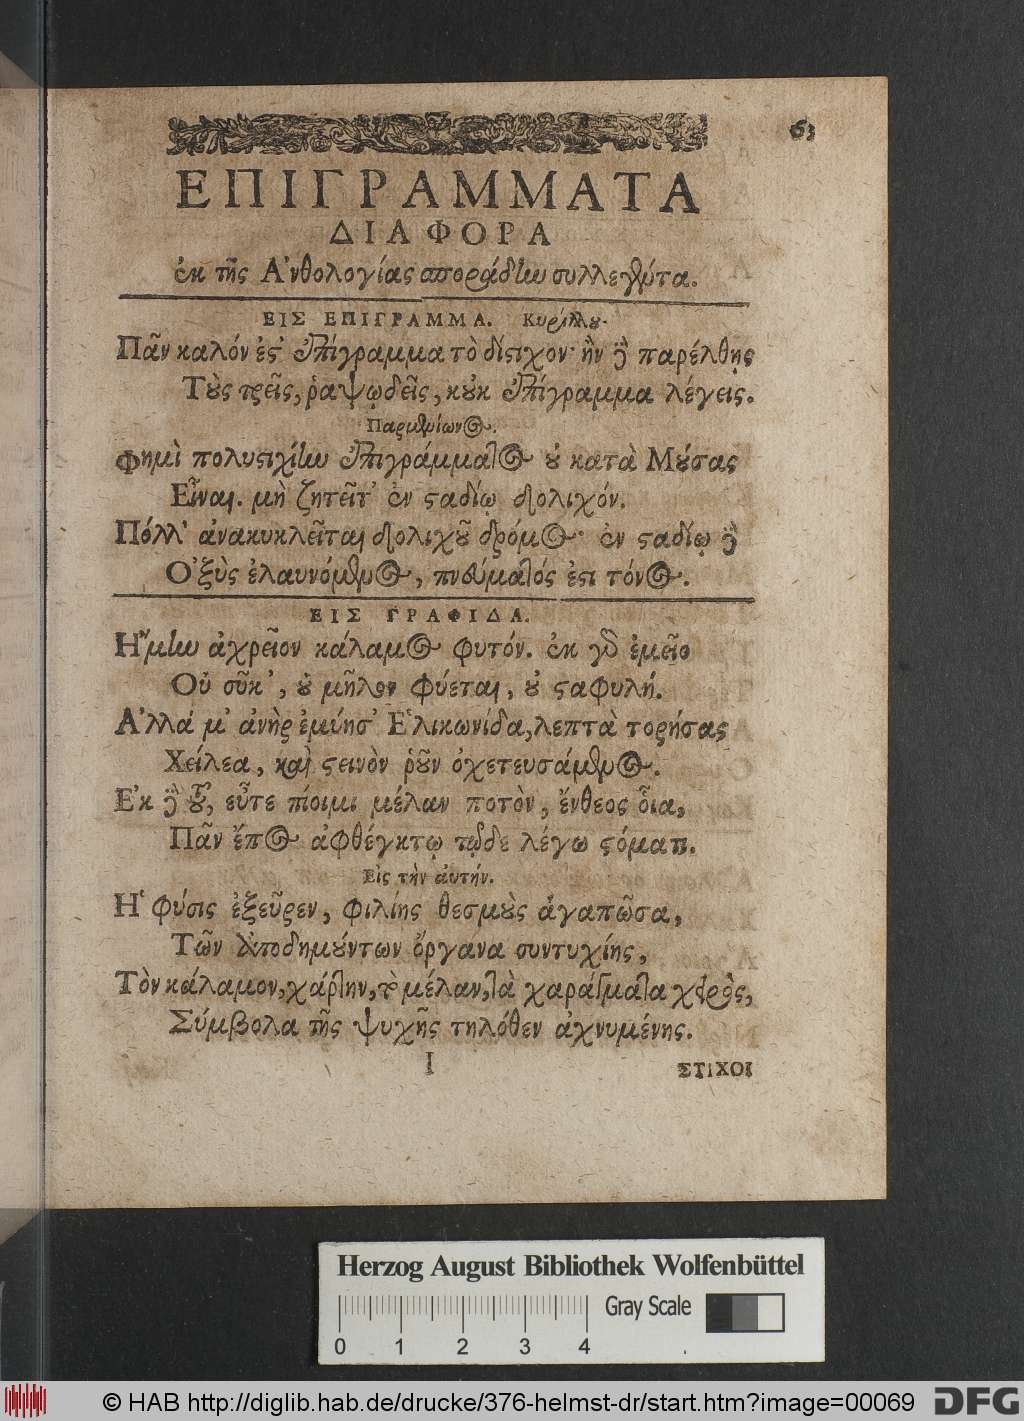 63
ΕΠΙΓΡΑΜΜΑΤΑ
ΔΙΑΦΟΡΑ
ἐκ τῆς Ἀνθολογίας σποράδην συλλεγέντα.
ΕΙΣ ΕΠΙΓΡΑΜΜΑ. Κυρίλλου.
Πᾶν καλόν ἐστ' ἐπίγραμμα τὸ δίστιχον· ἢν δὲ παρέλθῃς
Τοὺς τρεῖς, ῥαψῳδεῖς, κοὐκ ἐπίγραμμα λέγεις.
Παρμενίωνος.
Φημὶ πολυστιχίην ἐπιγράμματος οὐ κατὰ Μούσας
Εἶναι. μὴ ζητεῖτ' ἐν σταδίῳ δολιχόν.
Πόλλ' ἀνακυκλεῖται δολιχοῦ δρόμος· ἐν σταδίῳ δὲ
Ὀξὺς ἐλαυνόμενος, πνεύματός ἐστι τόνος.
ΕΙΣ ΓΡΑΦΙΔΑ.
Ἤμην ἀχρεῖον κάλαμος φυτόν. ἐκ γὰρ ἐμεῖο
Οὐ σῦκ', οὐ μῆλον φύεται, οὐ σταφυλή.
Ἀλλά μ' ἀνὴρ ἐμύησ' Ἑλικωνίδα, λεπτὰ τορήσας
Χείλεα, καὶ στεινὸν ῥοῦν ὀχετευσάμενος.
Ἐκ δὲ τοῦ, εὖτε πίοιμι μέλαν ποτὸν, ἔνθεος οἷα,
Πᾶν ἔπος ἀφθέγκτῳ τῷδε λέγω στόματι.
Εἰς τὴν αὐτήν.
Ἡ φύσις ἐξεῦρεν, φιλίης θεσμοὺς ἀγαπῶσα,
Τῶν ἀποδημούντων ὄργανα συντυχίης,
Τὸν κάλαμον, χάρτην, τὸ μέλαν, τὰ χαράγματα χειρὸς,
Σύμβολα τῆς ψυχῆς τηλόθεν ἀχνυμένης.
I
ΣΤΙΧΟΙ
Herzog August Bibliothek Wolfenbüttel
Gray Scale
0 1 2 3 4
© HAB http://diglib.hab.de/drucke/376-helmst-dr/start.htm?image=00069
DFG